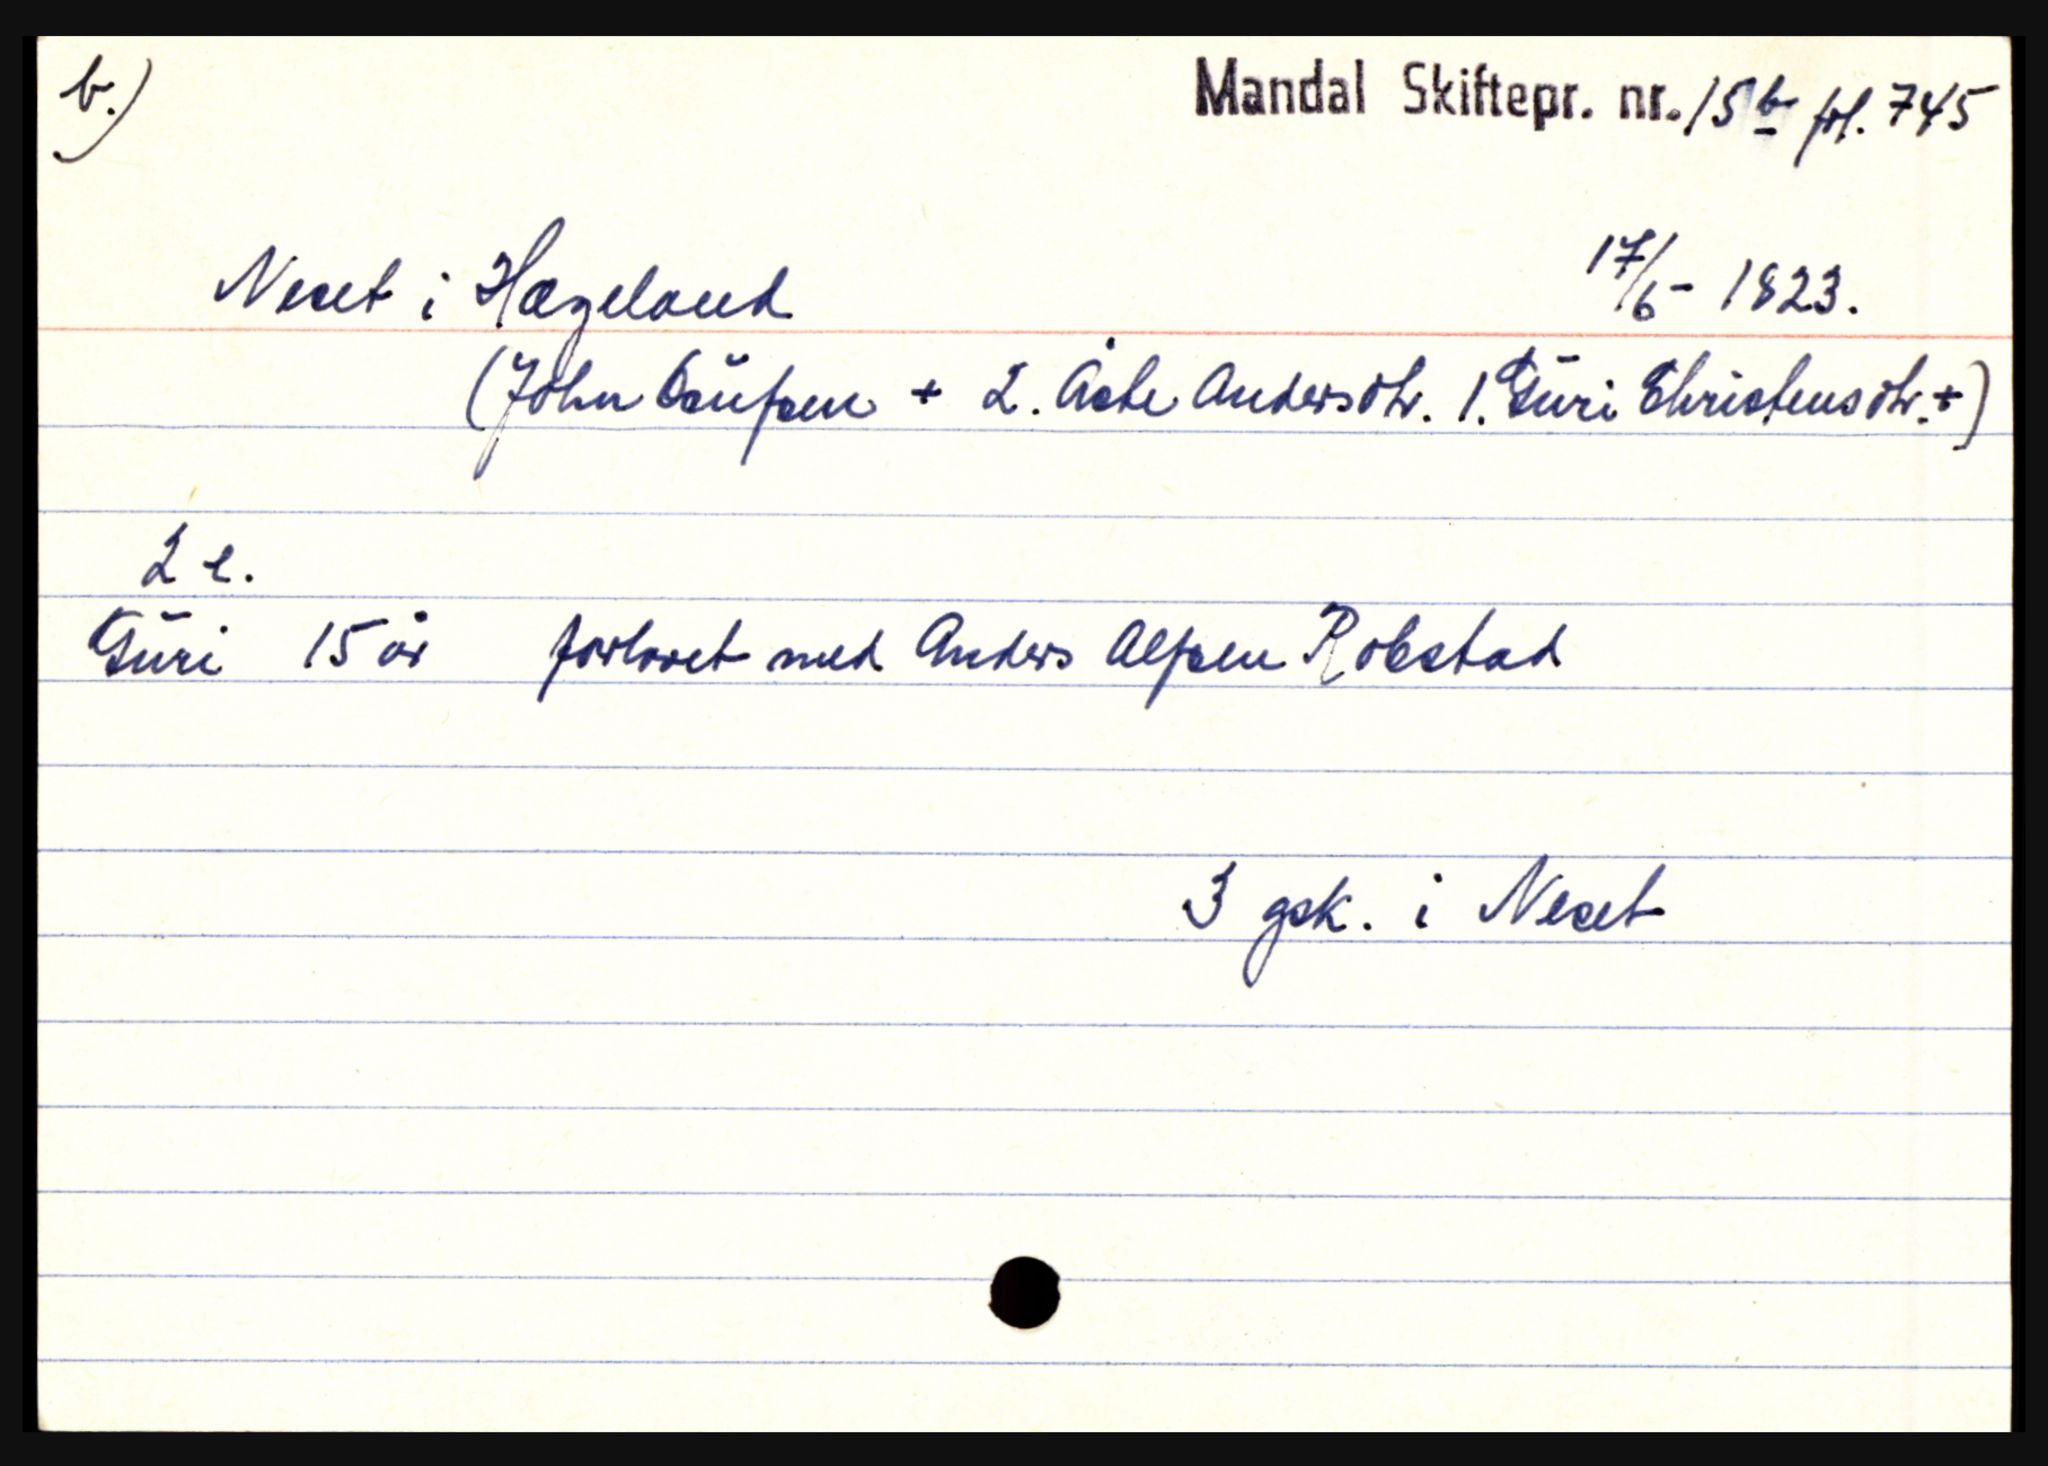 b.)
Mandal Skiftepr. nr. 15 b fol. 745
Neset i Hægeland 17/6 - 1823.
(John Knutsen + 2. Åste Andersdtr. 1. Guri Christensdtr. +)
2 e.
Guri 15 år forlovet med Anders Alfsen Robstad
3 gsk. i Neset